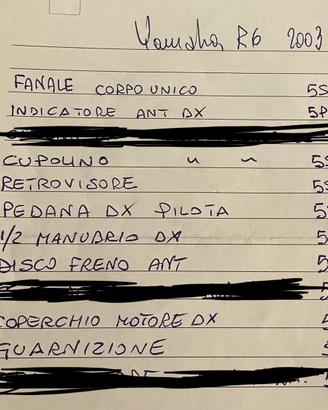 Yamaha R6 2003
FANALE CORPO UNICO 5S
INDICATORE ANT DX 5P
CUPOLINO " " 5S
RETROVISORE 5S
PEDANA DX PILOTA 5
1/2 MANUBRIO DX 5
DISCO FRENO ANT 5
COPERCHIO MOTORE DX
GUARNIZIONE